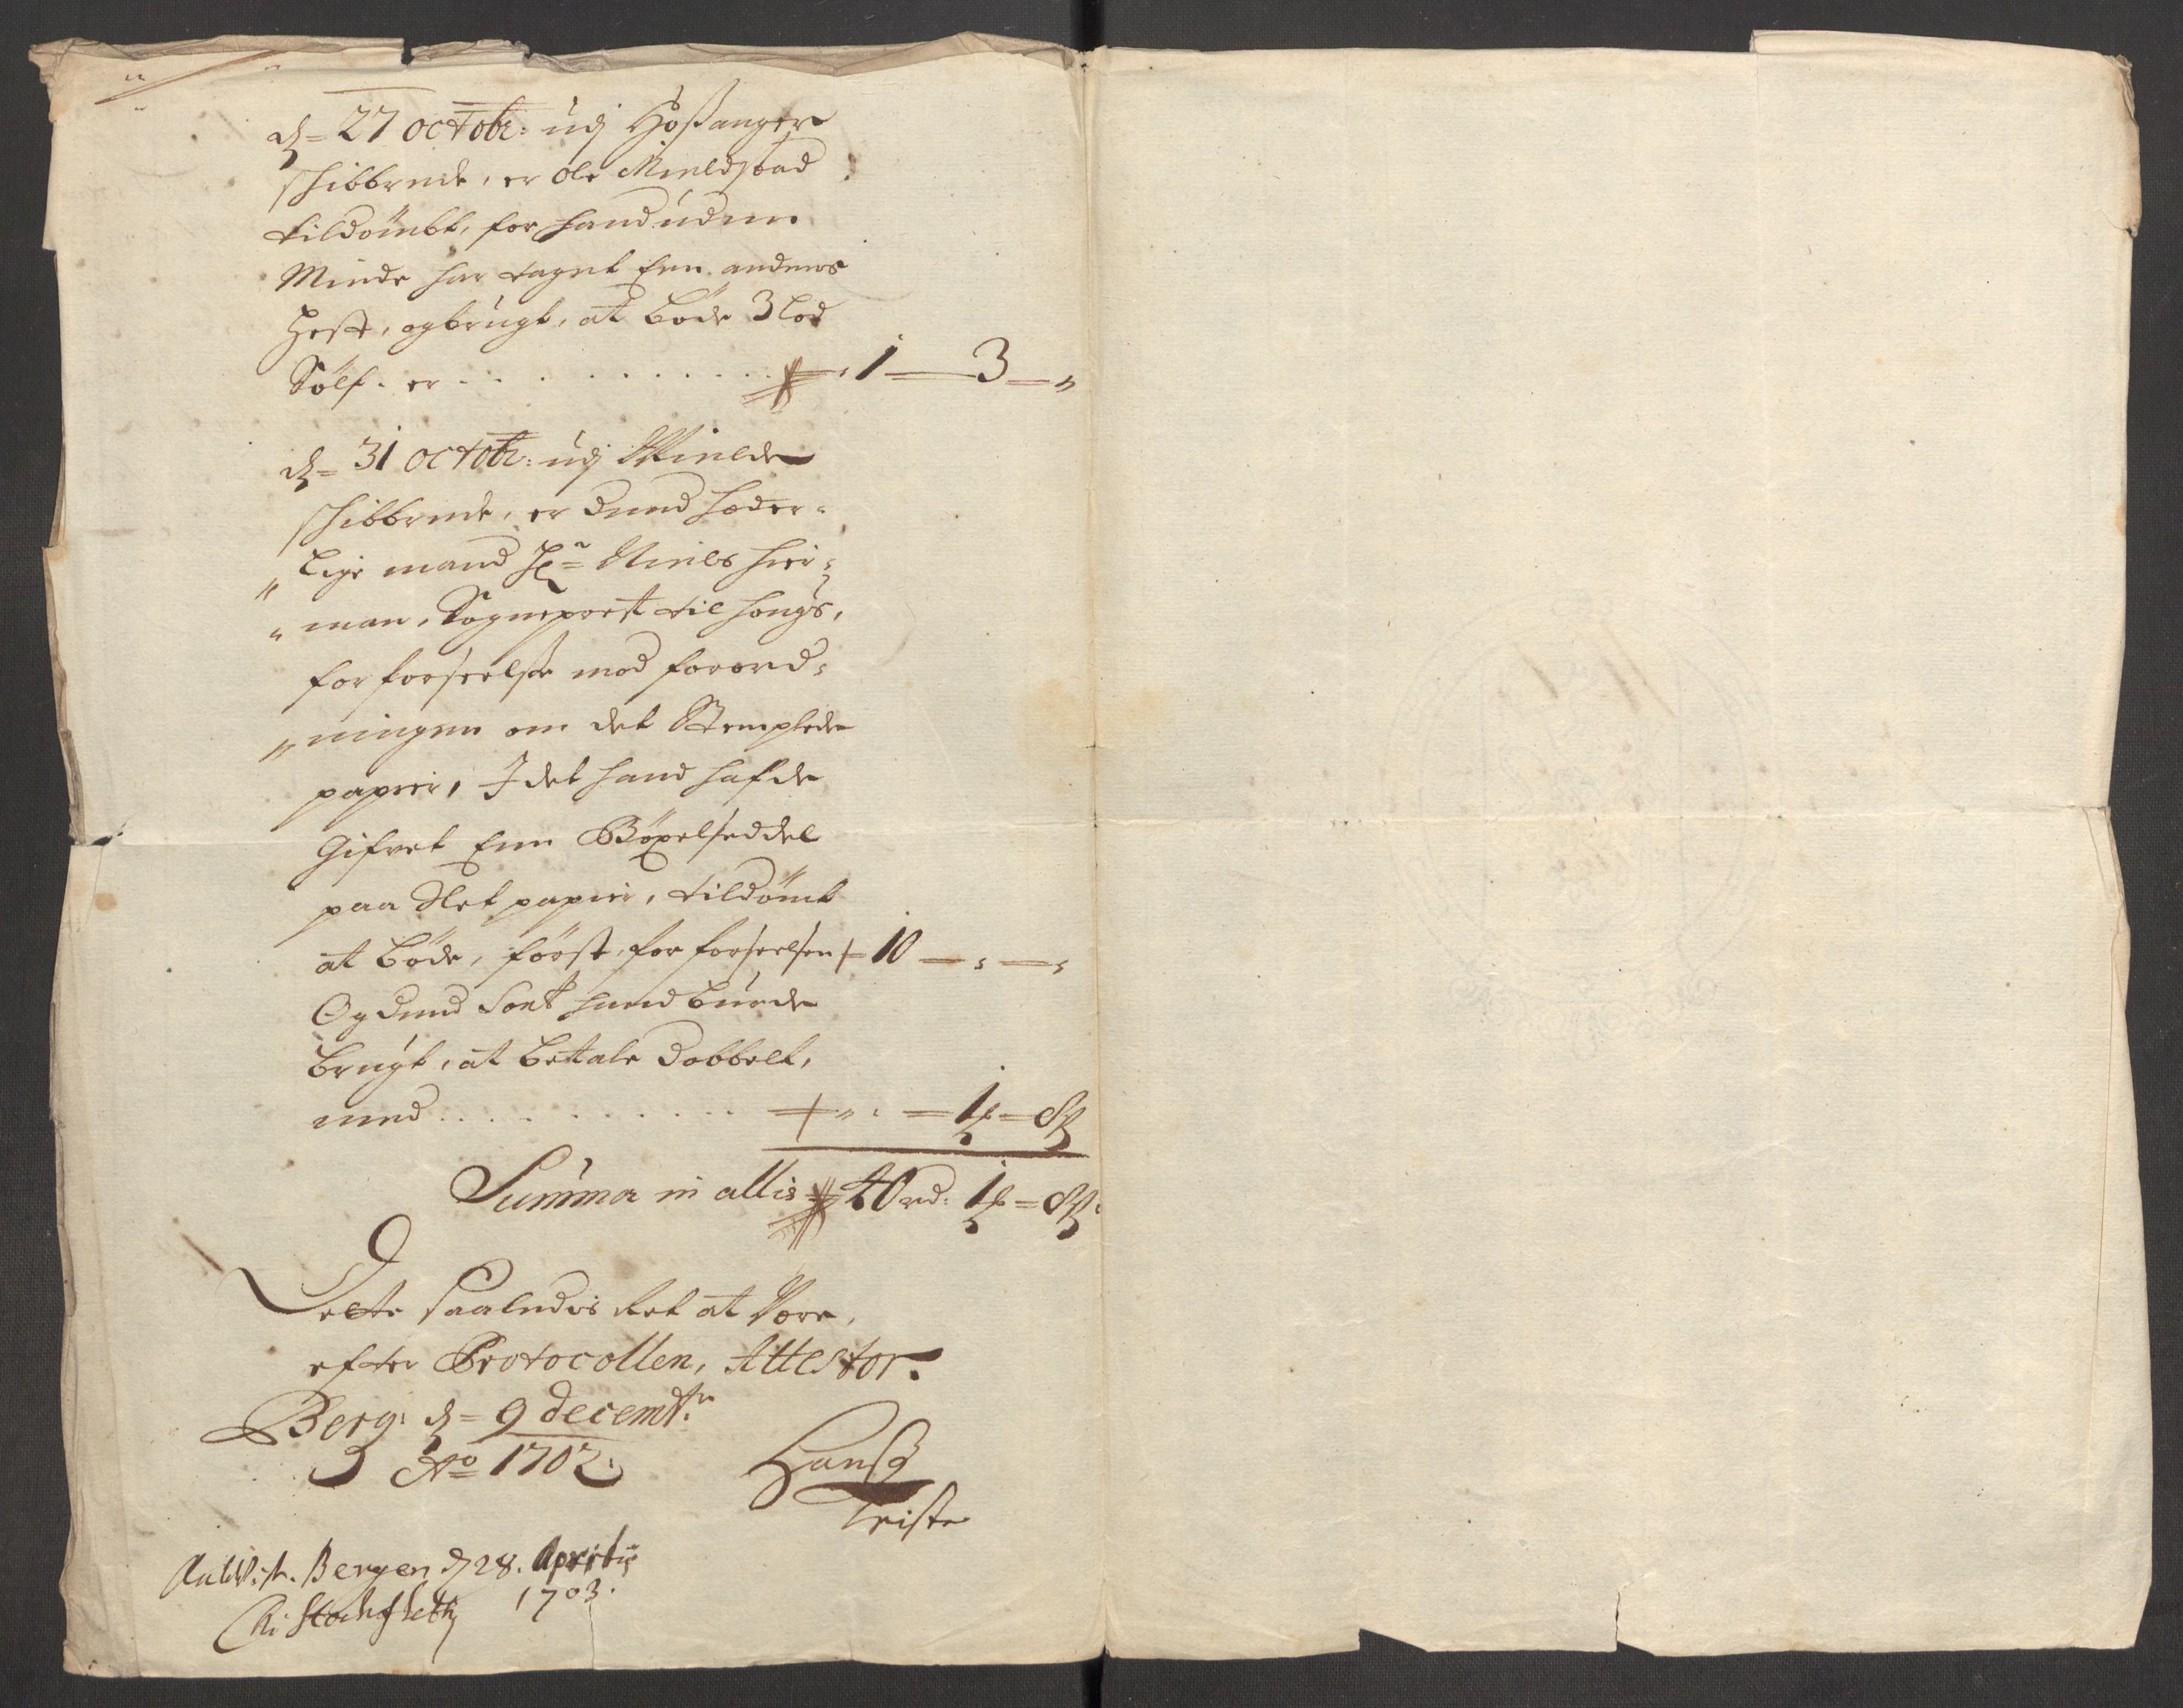 d: 27 octobr: udj Hoßanger
schibbrede, er Ole Mieldstad
tildömbt, for hand uden
Minde har taget Een andens
Hest, og brugt, at böde 3 lod
Sölf. er . . . . . . . . . . 1 — 3 — „
d: 31 octobr: udj Mielde
schibbrede, er dend hæder-
„ lige mand Hr: Niels hier-
„ man, Sogneprest til Hougs,
for forseelse mod forord-
„ ningen om det Stemplede
papier, I det hand hafde
Gifvet Een Böxelseddel
paa Slet papier, tildömt
at böde, först, for forseelsen 10 — „ — „
Og dend Sort hand burde
brugt, at bettale dobbelt,
med . . . . . . . . . . „ — 1 ƒ — 8 ß
Summa in allis 40 rd: 1 ƒ = 8 ß:
Dette saaledis Ret at Være,
efter Protocollen, Attestor.
Berg: d: 9 decembr:
Ao 1702.
Hanß
Teiste
Bergen d 28. Aprilis
1703.
Stockfleth